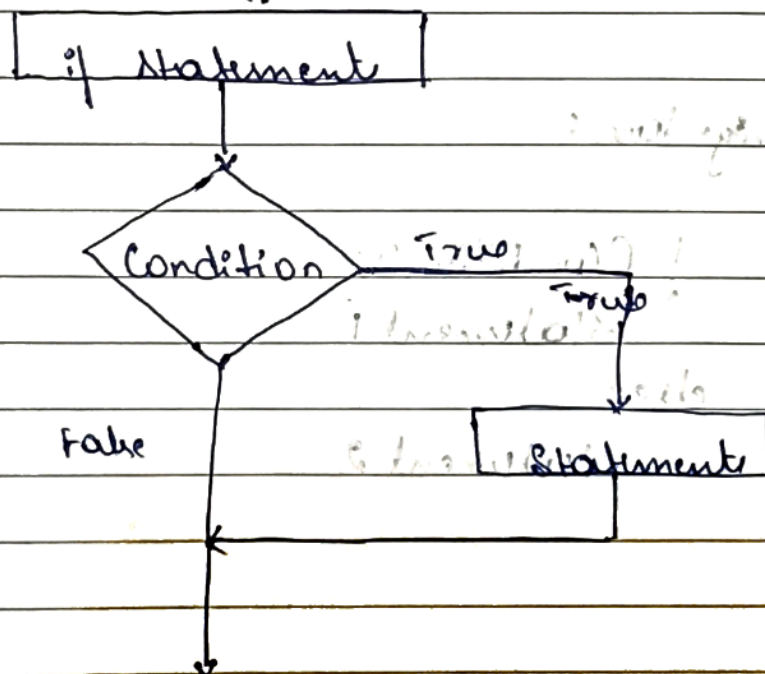 if statement
Condition
True
True
False
Statements